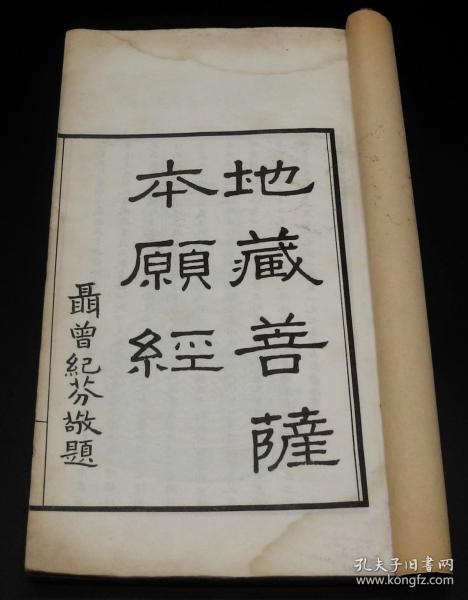 地藏菩薩
本願經
聶曾紀芬敬題
孔夫子旧书网
www.kongfz.com